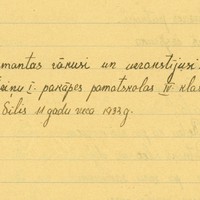 mantas rākusi un uzrakstijusi
I. pakāpes pamatskolas IV. klas
Silis 11 gadu vecs 1933 g.